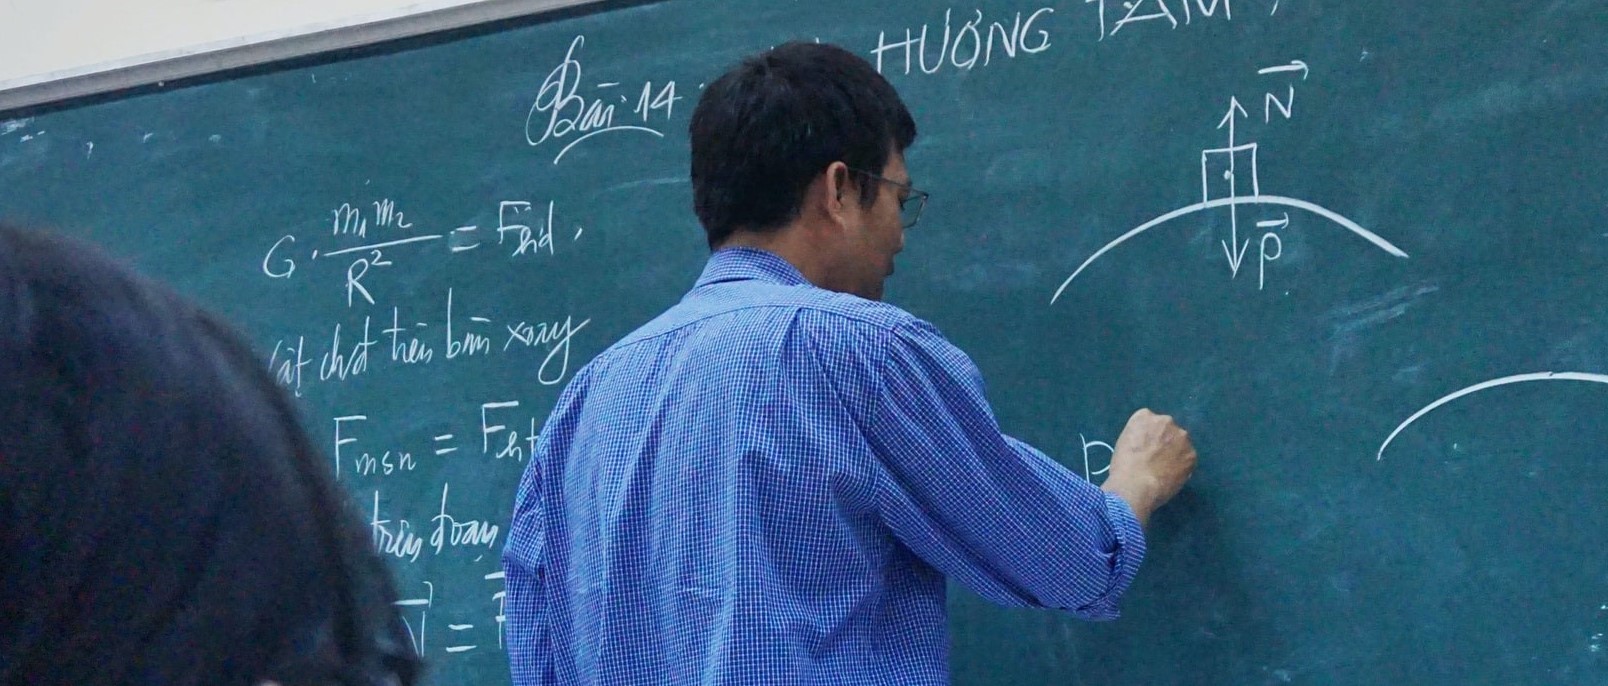 Bài 14: HƯỚNG TÂM
G. m₁m₂ / R² = Fhd,
chất trên bàn xoay
Fmsn = Fht
trên đoạn
N =
N
P
P